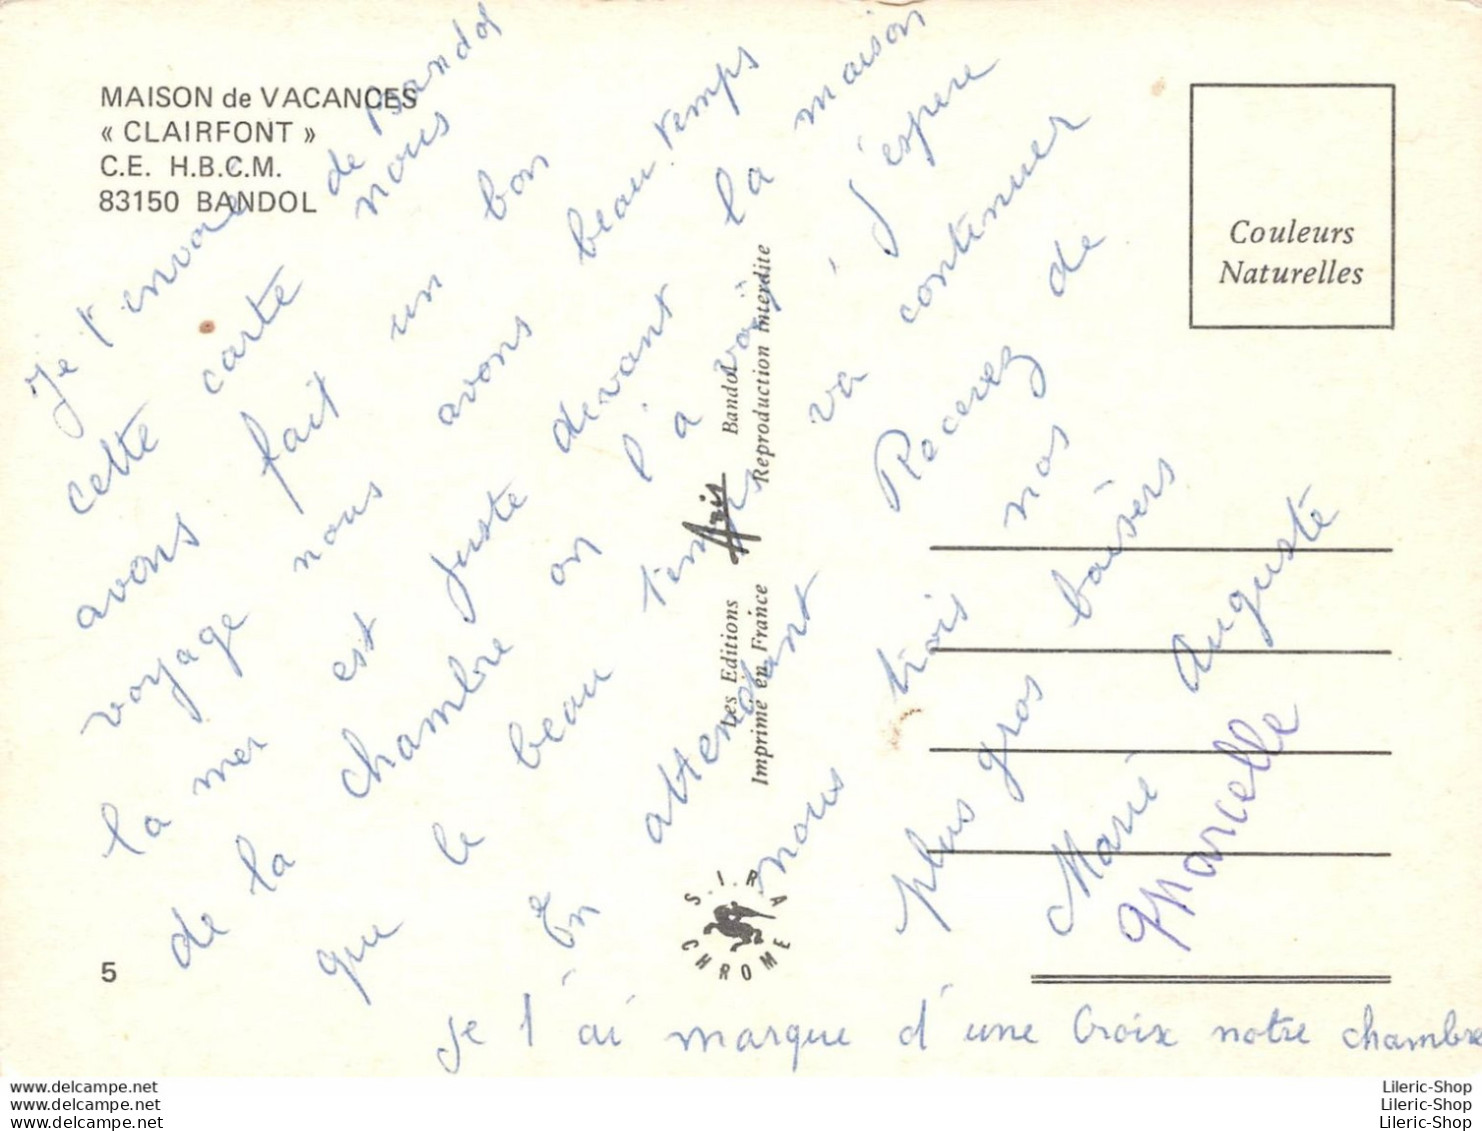 MAISON de VACANCES
« CLAIRFONT »
C.E. H.B.C.M.
83150 BANDOL
Couleurs
Naturelles
Je t'envoie de Bandol
cette carte nous
avons fait un bon
voyage nous avons beau temps
la mer est juste devant la maison
de la chambre on l'a voit j'espere
que le beau temps va continuer
En attendant Recevez de
nous trois nos
plus gros baisers
Marie Auguste
Marcelle
Je t'ai marque d'une Croix notre chambre
Les Editions Aris Bandol
Imprimé en France Reproduction interdite
S.I.R.A
CHROME
5
delcampe.net
delcampe.net
delcampe.net
Lileric-Shop
Lileric-Shop
Lileric-Shop